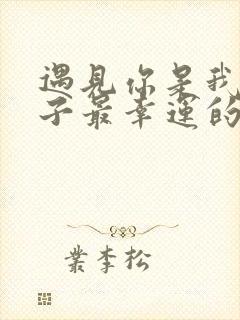 遇見你是我
子最幸運的
葉李松